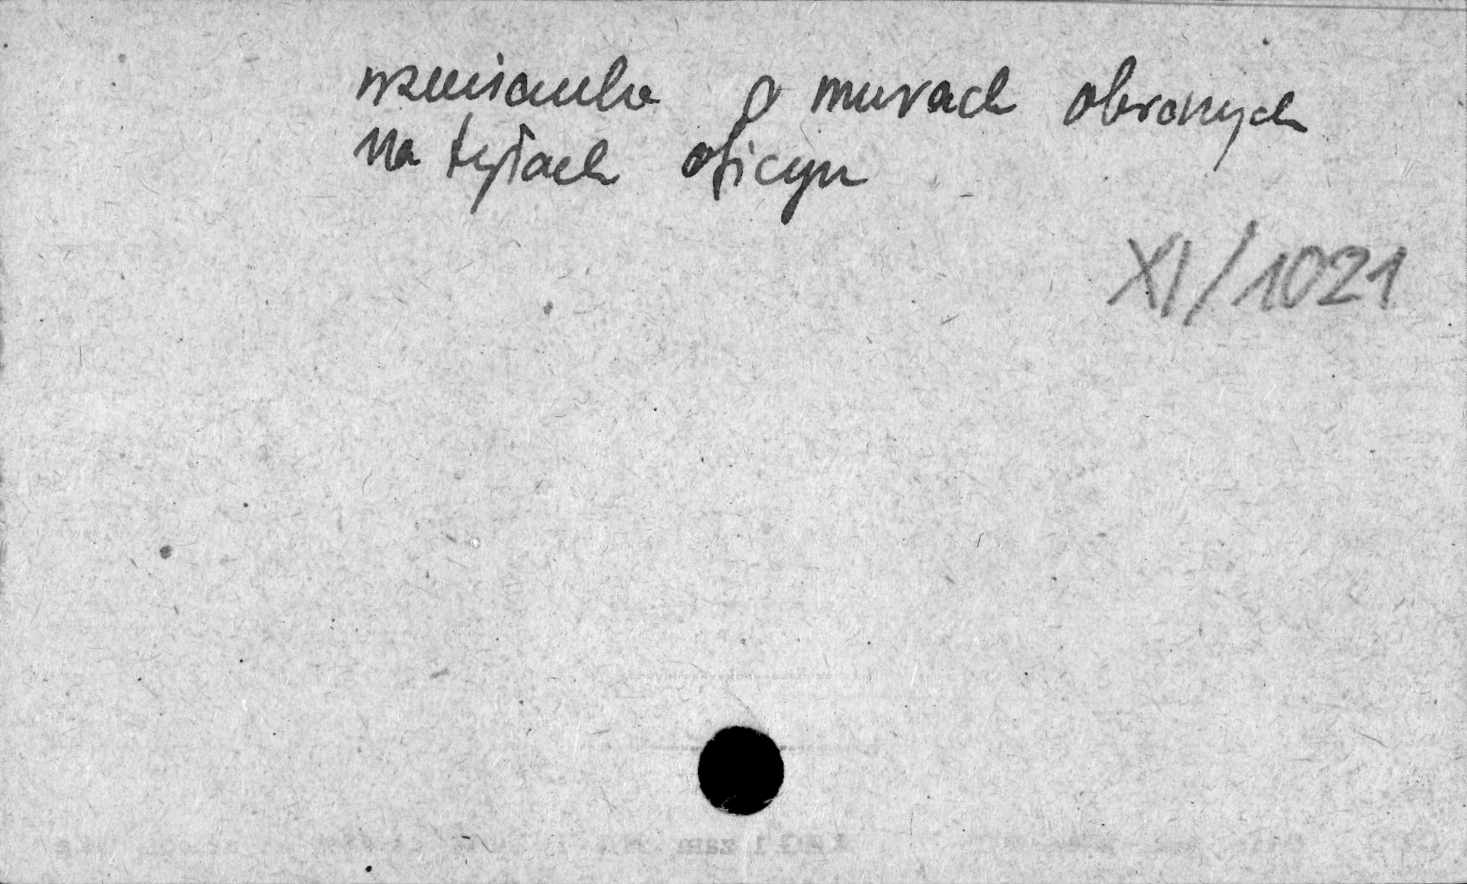 wzmianka o murach obronnych
na tyłach oficyn
XI/1021